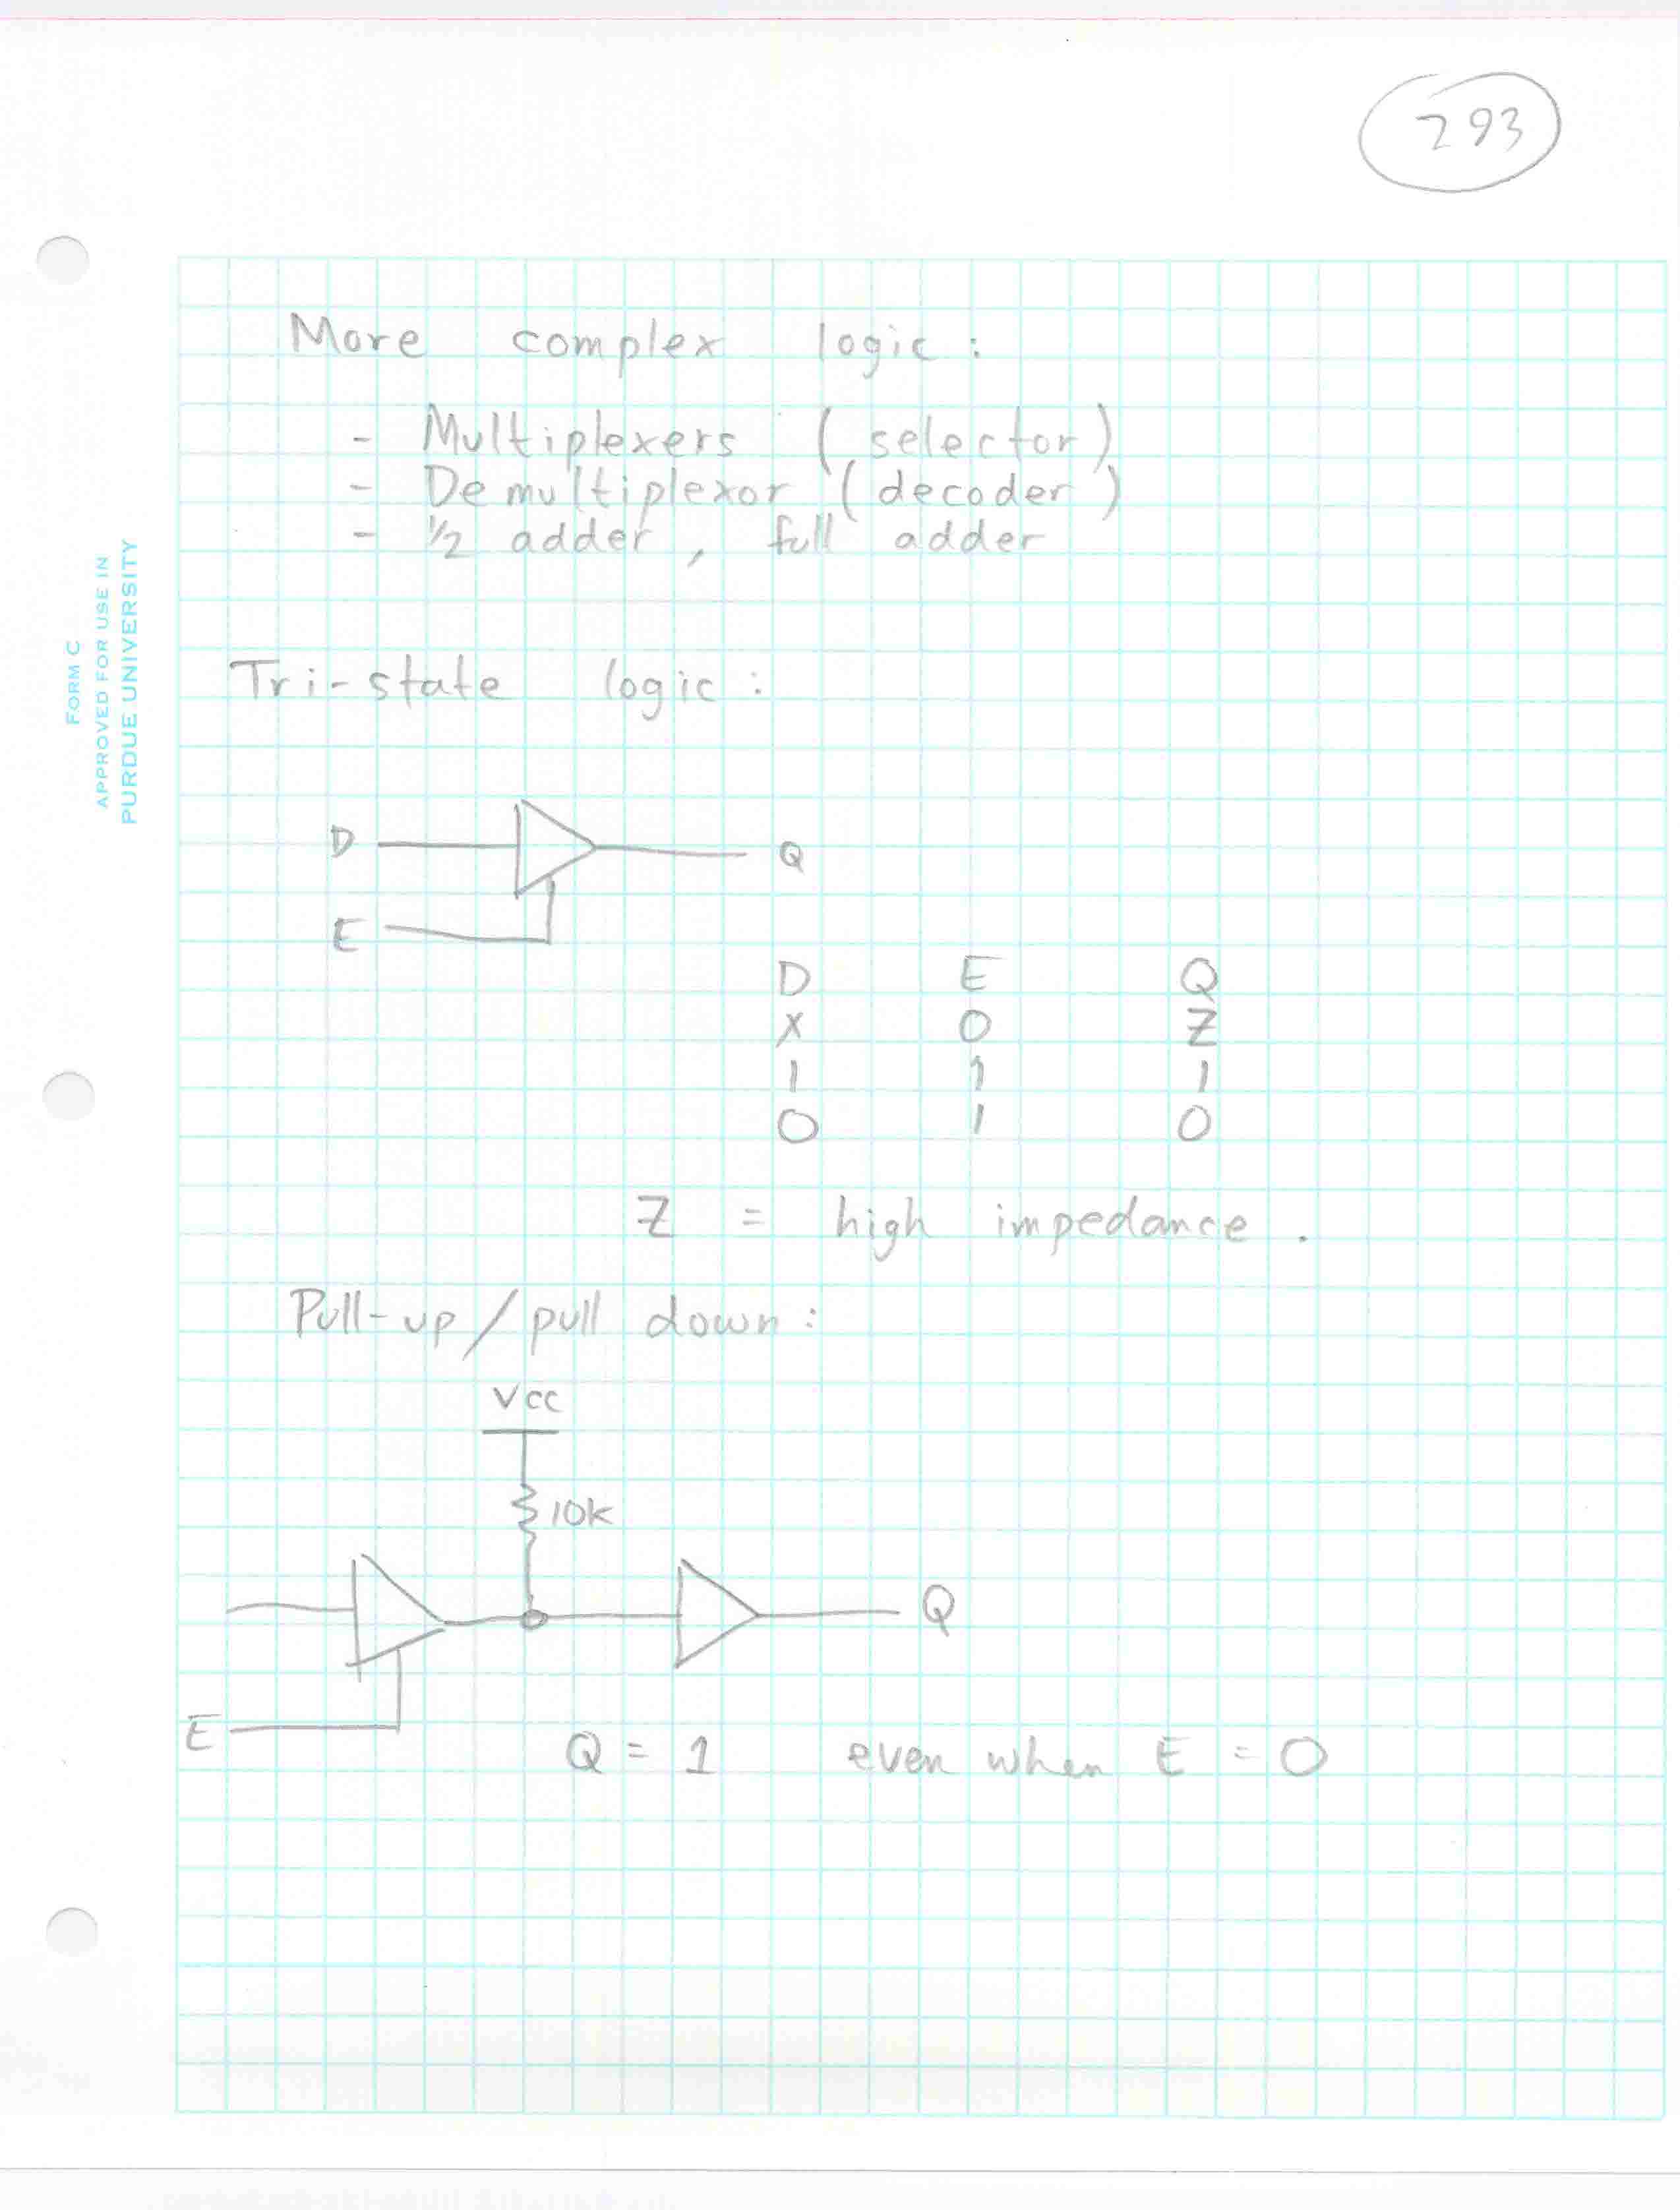 293
FORM C
APPROVED FOR USE IN
PURDUE UNIVERSITY
More complex logic:
- Multiplexers (selector)
- Demultiplexor (decoder)
- 1/2 adder, full adder
Tri-state logic:
D Q
E
D E Q
X 0 Z
1 1 1
0 1 0
Z = high impedance.
Pull-up/pull down:
Vcc
10k
Q
E
Q = 1 even when E = 0